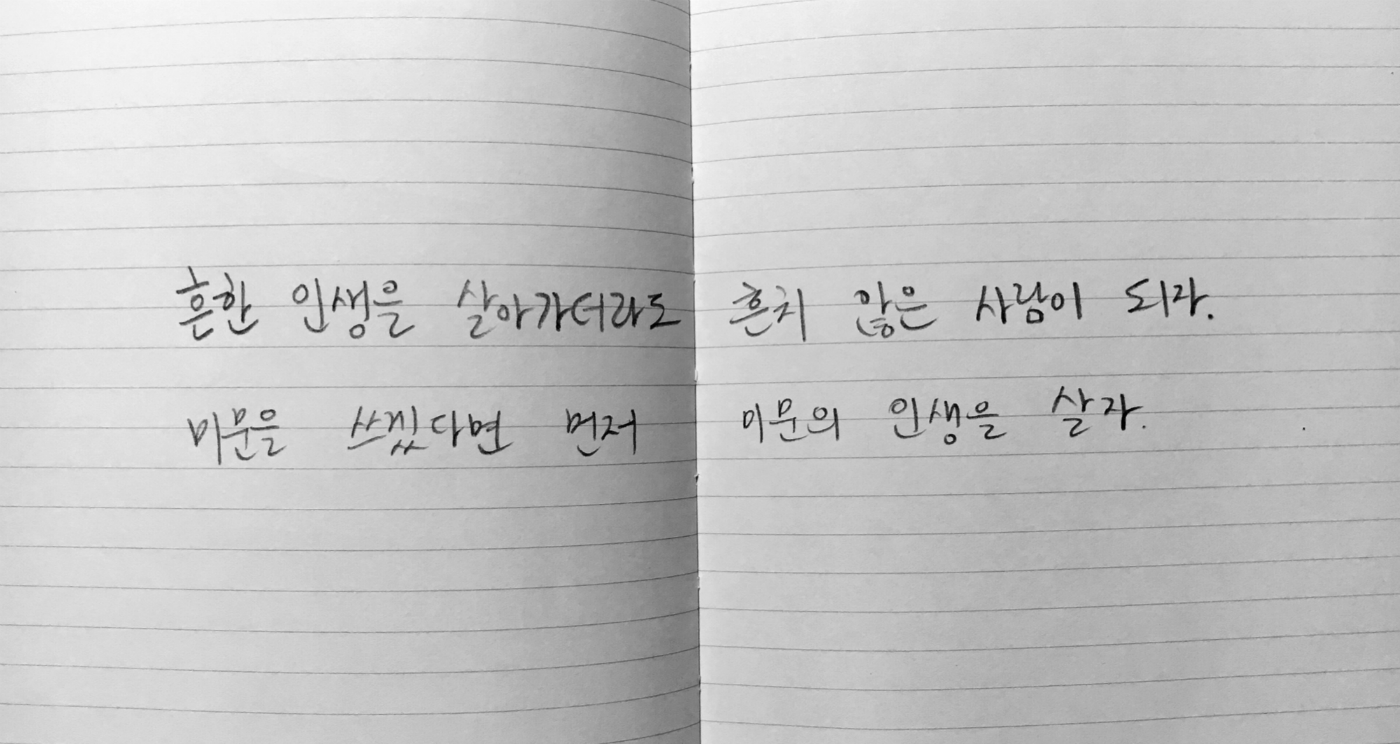 흔한 인생을 살아가더라도 흔치 않은 사람이 되자.
미문을 쓰겠다면 먼저 미문의 인생을 살자.